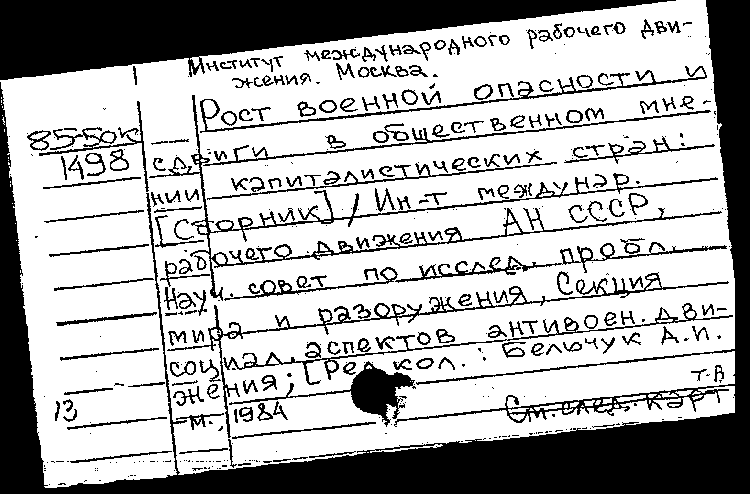 Институт международного рабочего дви-
жения. Москва.
Рост военной опасности и
85-50к
1498
сдвиги в общественном мне-
нии капиталистических стран:
[Сборник] / Ин-т междунар.
рабочего движения АН СССР,
Науч. совет по исслед. пробл.
мира и разоружения, Секция
социал. аспектов антивоен. дви-
жения; [Ред. кол.: Бельчук А.И.
т-А
13
-м., 1984
См. след. карт